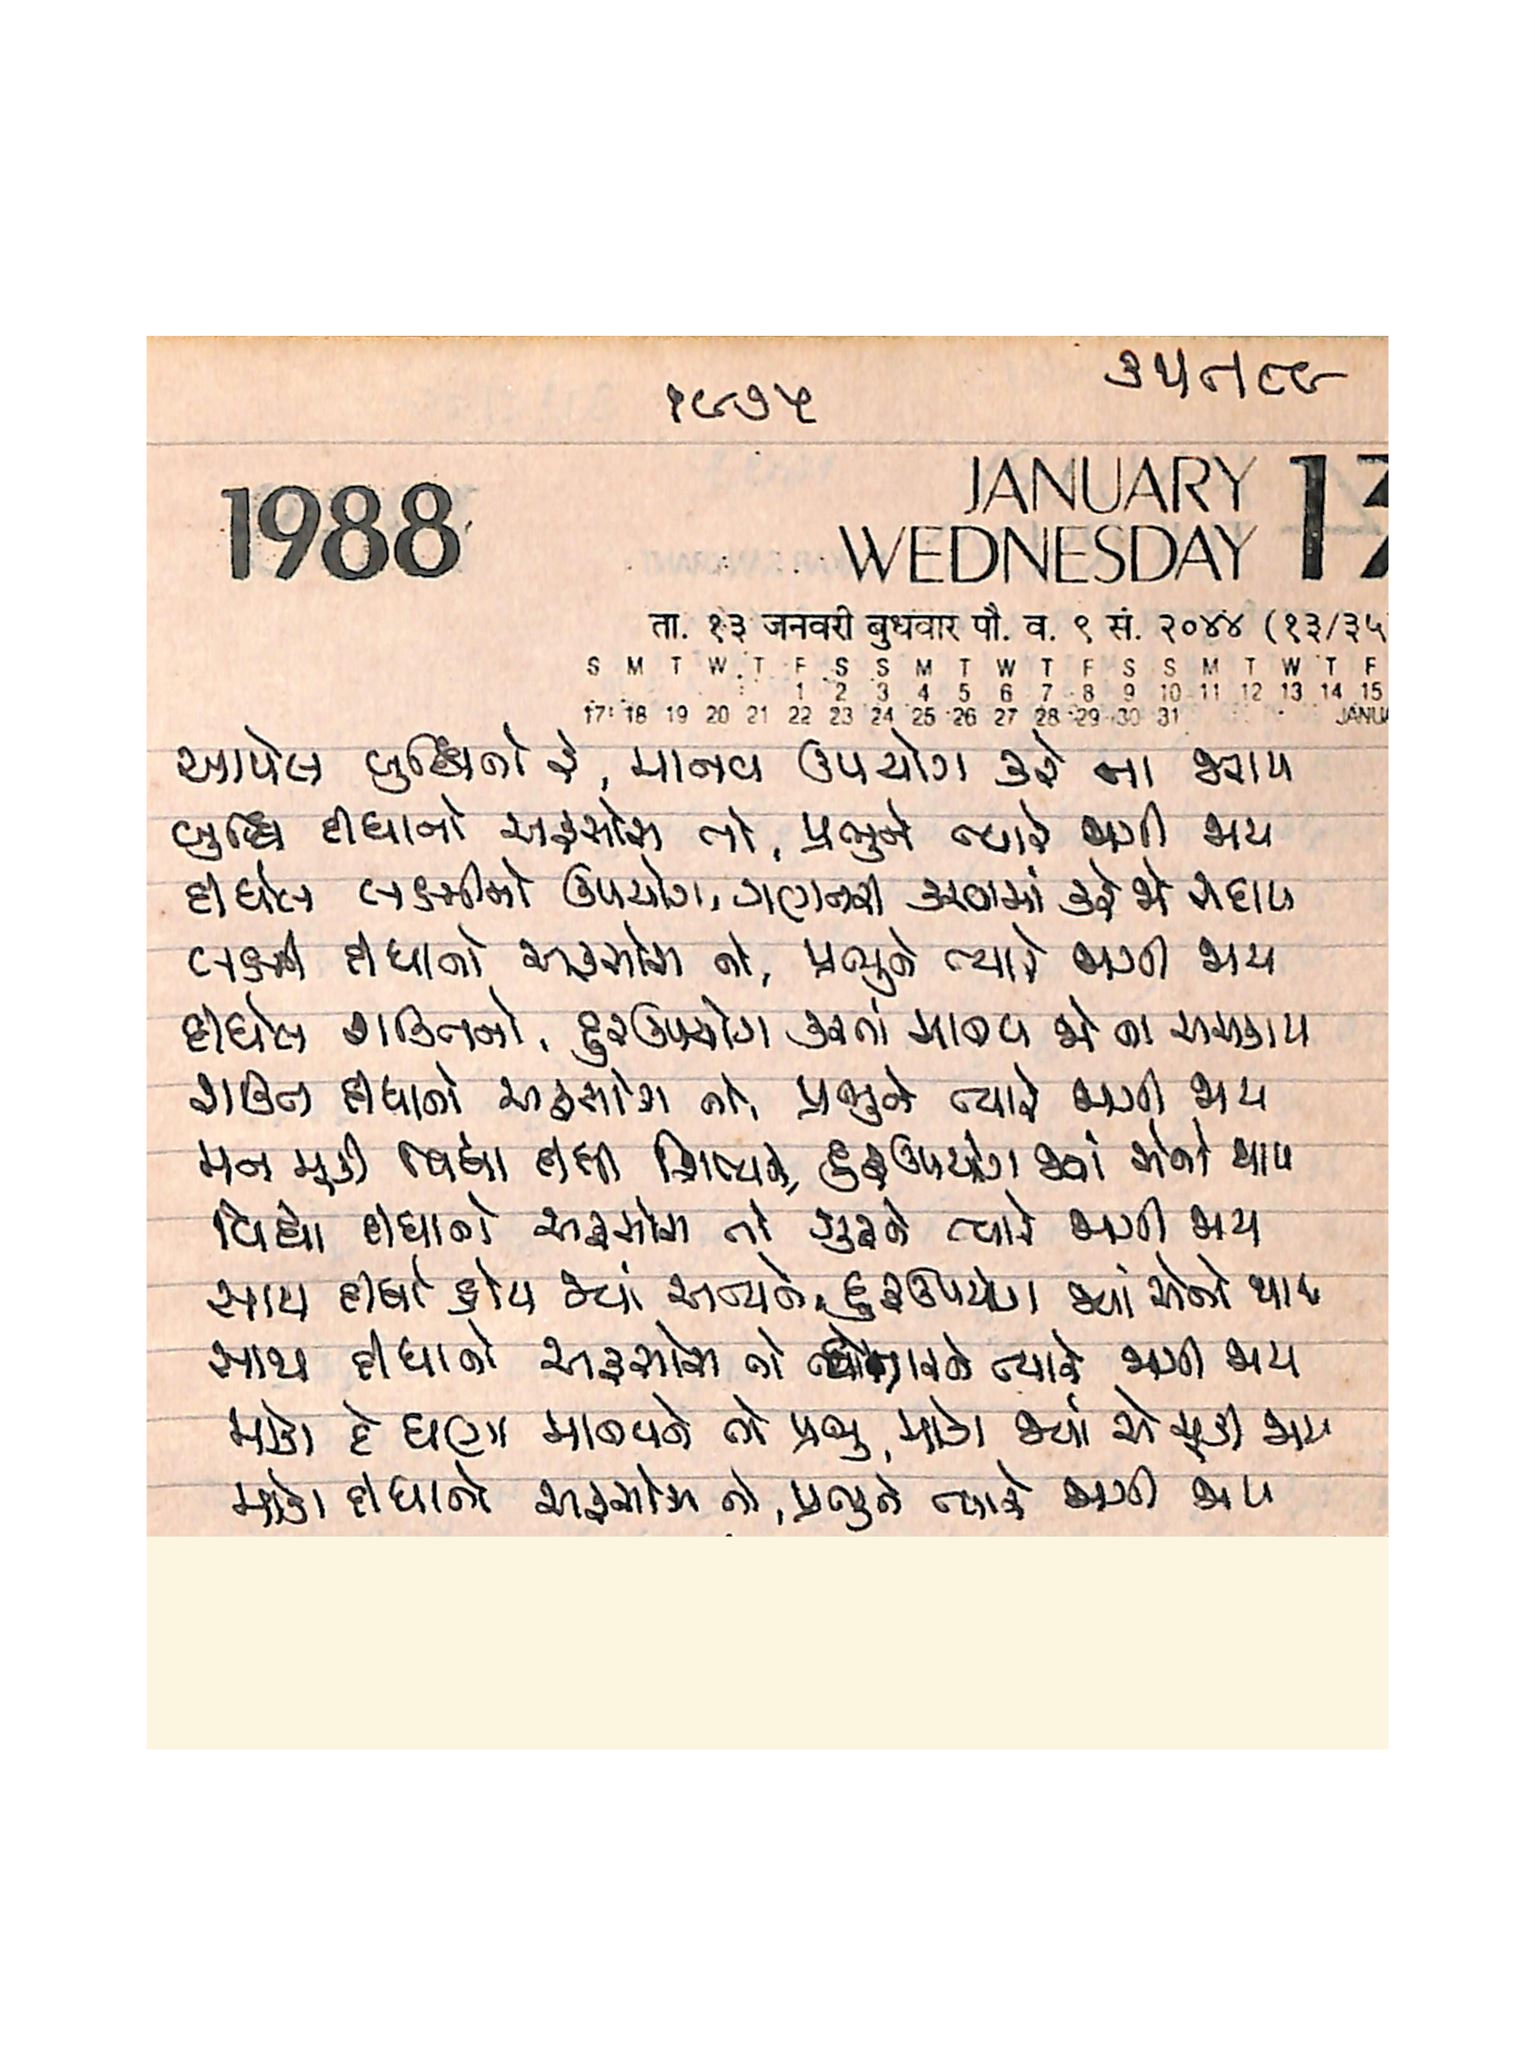 ૧૮૭૫
1988
JANUARY
WEDNESDAY 13
ता. १३ जनवरी बुधवार पौ. व. ९ सं. २०४४ (१३/३५
S M T W T F S S M T W T F S S M T W T F
1 2 3 4 5 6 7 8 9 10 11 12 13 14 15
17 18 19 20 21 22 23 24 25 26 27 28 29 30 31 JANUA
આપેલ બુદ્ધિનો રે, માનવ ઉપયોગ કરે ના જરાય
બુદ્ધિ દીધાનો અફસોસ તો, પ્રભુને ત્યારે જાગી જાય
દીધેલ લક્ષ્મીનો ઉપયોગ, ગણતરી કરવામાં કરે જો સદાય
લક્ષ્મી દીધાનો અફસોસ તો, પ્રભુને ત્યારે જાગી જાય
દીધેલ શક્તિનો, દુરઉપયોગ કરતાં માનવ જો ના અચકાય
શક્તિ દીધાનો અફસોસ તો, પ્રભુને ત્યારે જાગી જાય
મન મૂકી વિદ્યા દીધી શિષ્યને, દુરઉપયોગ જ્યાં એનો થાય
વિદ્યા દીધાનો અફસોસ તો ગુરુને ત્યારે જાગી જાય
સાથ દીધો હોય જ્યાં અન્યને, દુરઉપયોગ જ્યાં એનો થાય
સાથ દીધાનો અફસોસ તો દેનારને ત્યારે જાગી જાય
મોકો દે ઘણા માનવને તો પ્રભુ, મોકા જ્યાં એ ચૂકી જાય
મોકા દીધાનો અફસોસ તો, પ્રભુને ત્યારે જાગી જાય